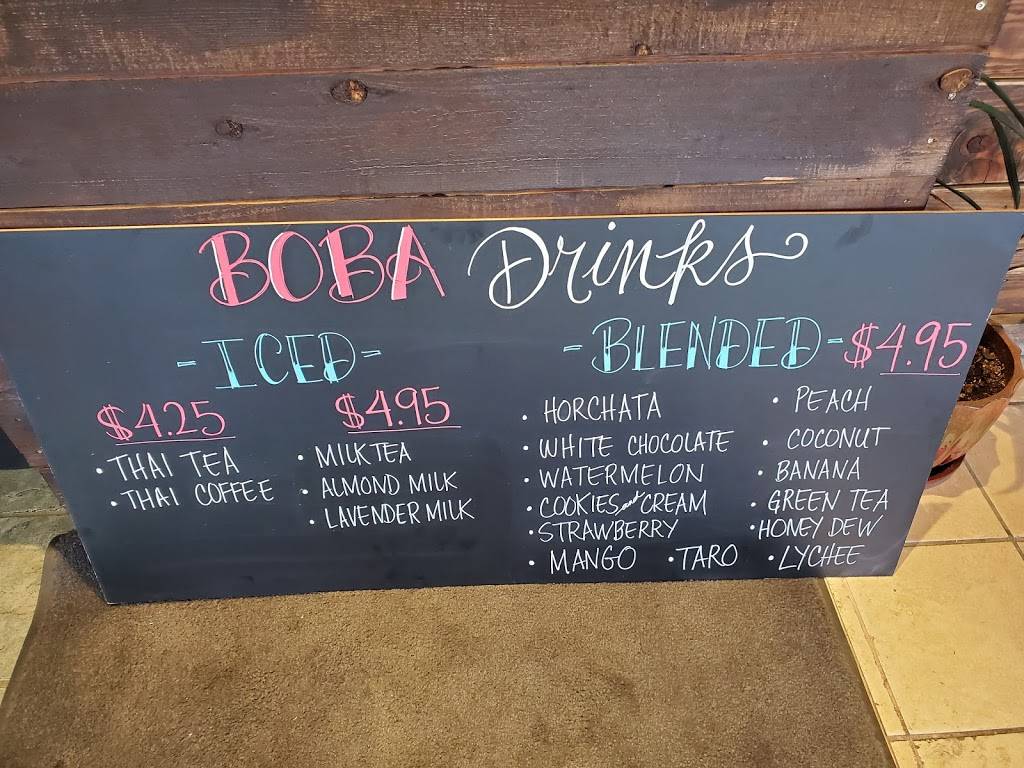 BOBA Drinks
- ICED -
$4.25
• THAI TEA
• THAI COFFEE
$4.95
• MILK TEA
• ALMOND MILK
• LAVENDER MILK
- BLENDED - $4.95
• HORCHATA
• WHITE CHOCOLATE
• WATERMELON
• COOKIES and CREAM
• STRAWBERRY
• MANGO • TARO
• PEACH
• COCONUT
• BANANA
• GREEN TEA
• HONEY DEW
• LYCHEE